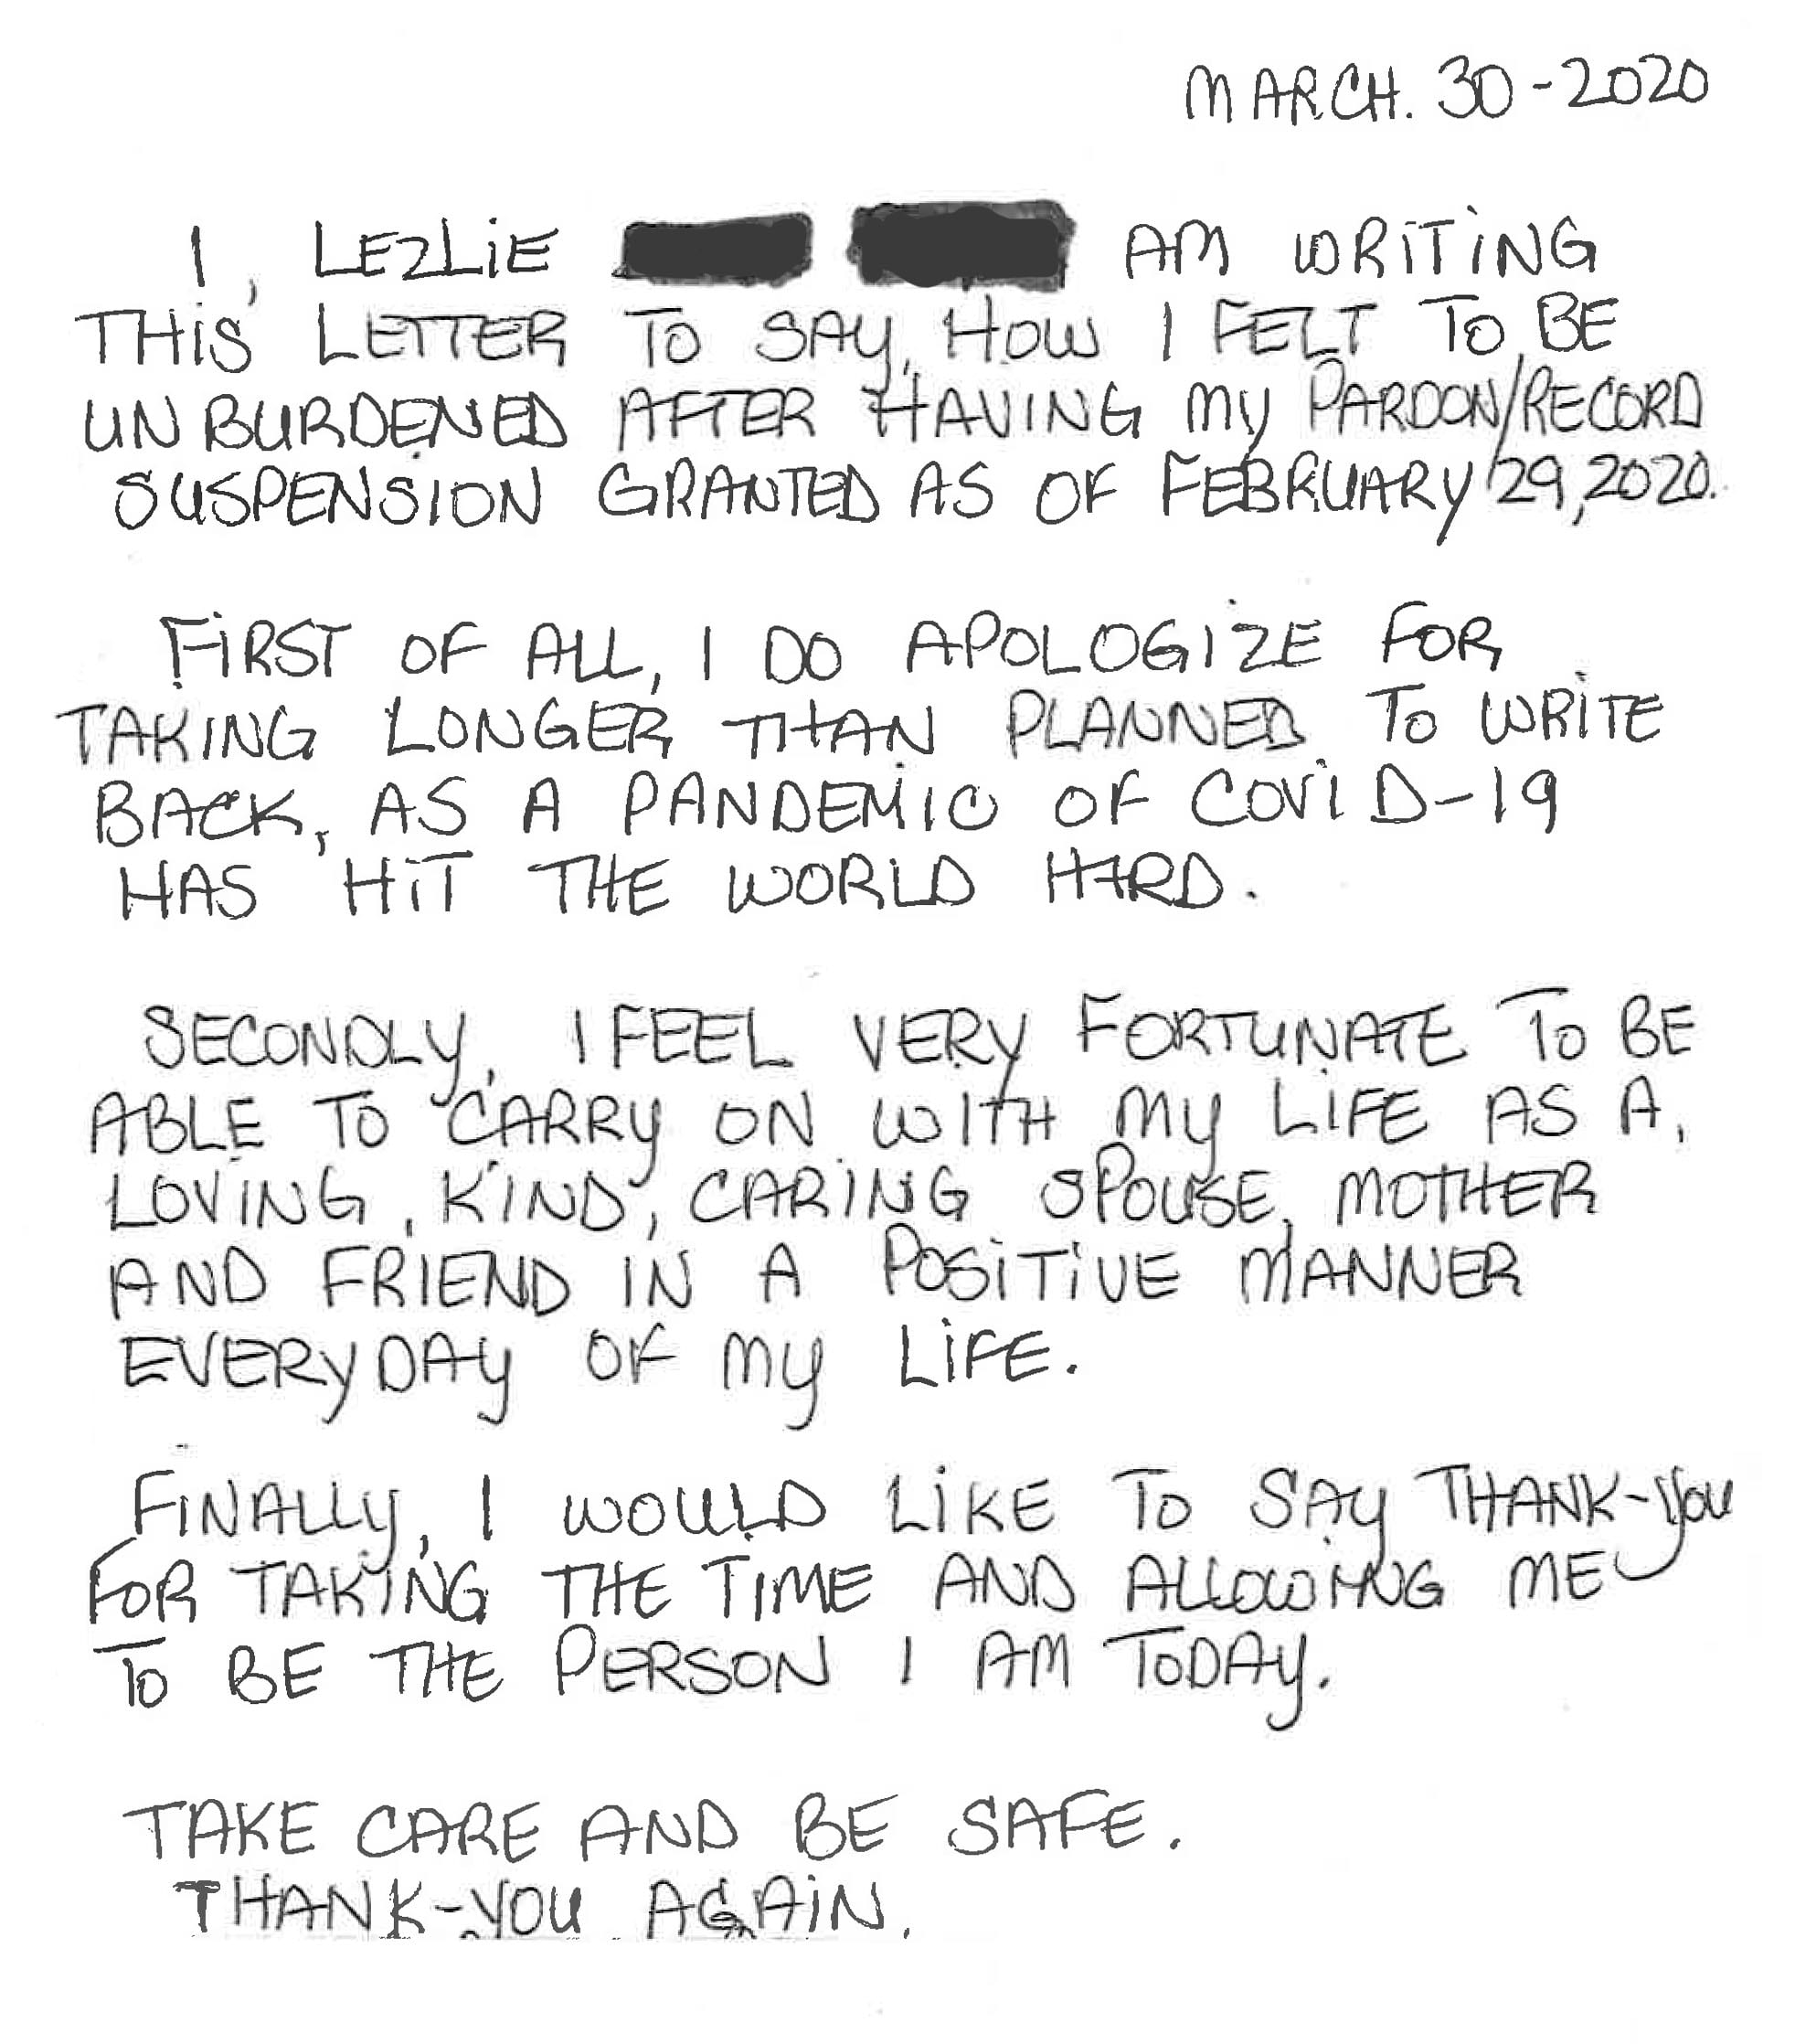 MARCH. 30-2020
I, LEZLIE AM WRITING
THIS LETTER TO SAY, HOW I FELT TO BE
UNBURDENED AFTER HAVING MY PARDON/RECORD
SUSPENSION GRANTED AS OF FEBRUARY 29, 2020.
FIRST OF ALL, I DO APOLOGIZE FOR
TAKING LONGER THAN PLANNED TO WRITE
BACK, AS A PANDEMIC OF COVID-19
HAS HIT THE WORLD HARD.
SECONDLY, I FEEL VERY FORTUNATE TO BE
ABLE TO CARRY ON WITH MY LIFE AS A,
LOVING, KIND, CARING SPOUSE, MOTHER
AND FRIEND IN A POSITIVE MANNER
EVERYDAY OF MY LIFE.
FINALLY, I WOULD LIKE TO SAY THANK-YOU
FOR TAKING THE TIME AND ALLOWING ME
TO BE THE PERSON I AM TODAY.
TAKE CARE AND BE SAFE.
THANK-YOU AGAIN.